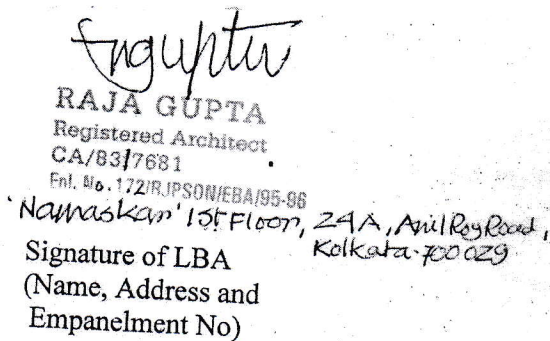 RAJA GUPTA
Registered Architect
CA/83/7681
Enl. No. 172/RJPSON/EBA/95-96
'Namaskar' 1st Floor, 24A, Anil Roy Road,
Kolkata-700029
Signature of LBA
(Name, Address and
Empanelment No)